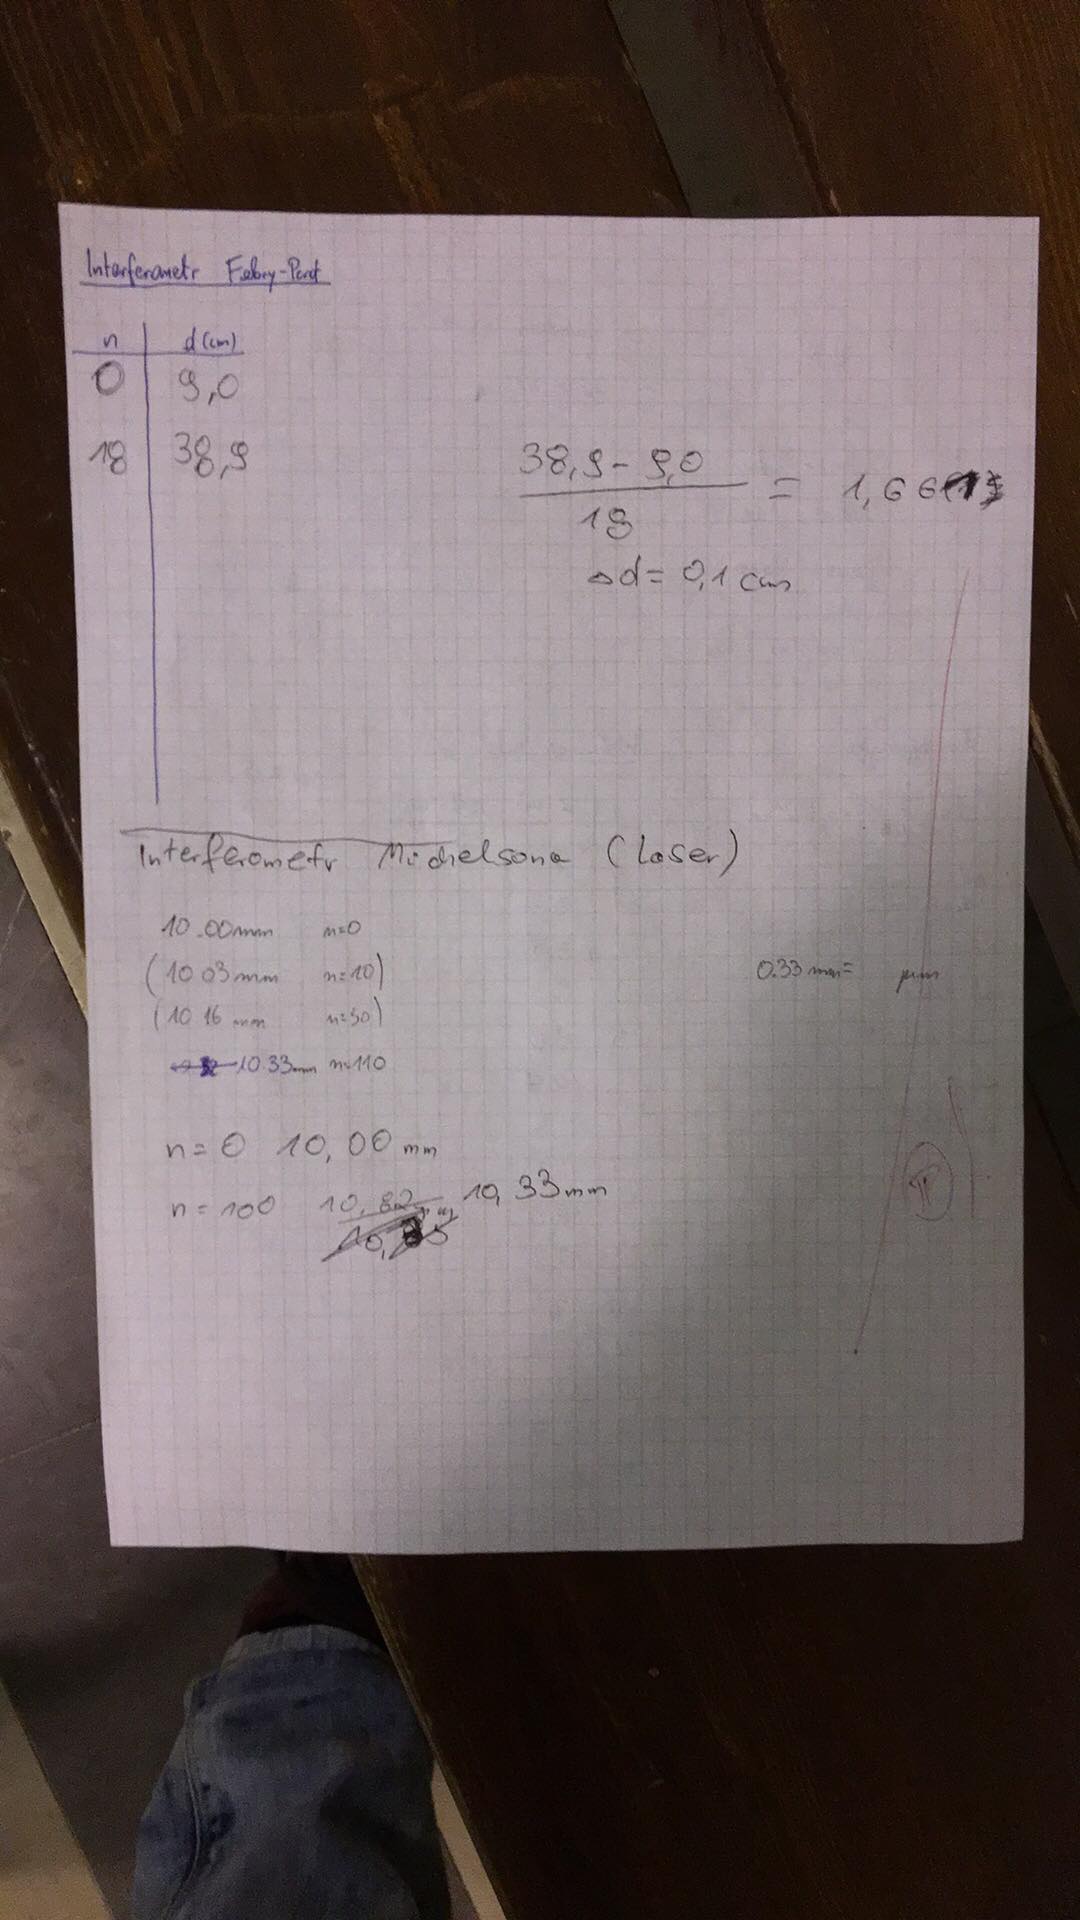 Interferometr Febry-Perot
n d (cm)
0 9,0
18 38,9
38,9 - 9,0
18
= 1,66
Δd = 0,1 cm
Interferometr Michelsona (Laser)
10.00mm n=0
(10 03mm n=10)
(10 16 mm n=50)
10.33mm n=110
0.33 mm= μm
n = 0 10,00 mm
n = 100 10,82 10,33mm